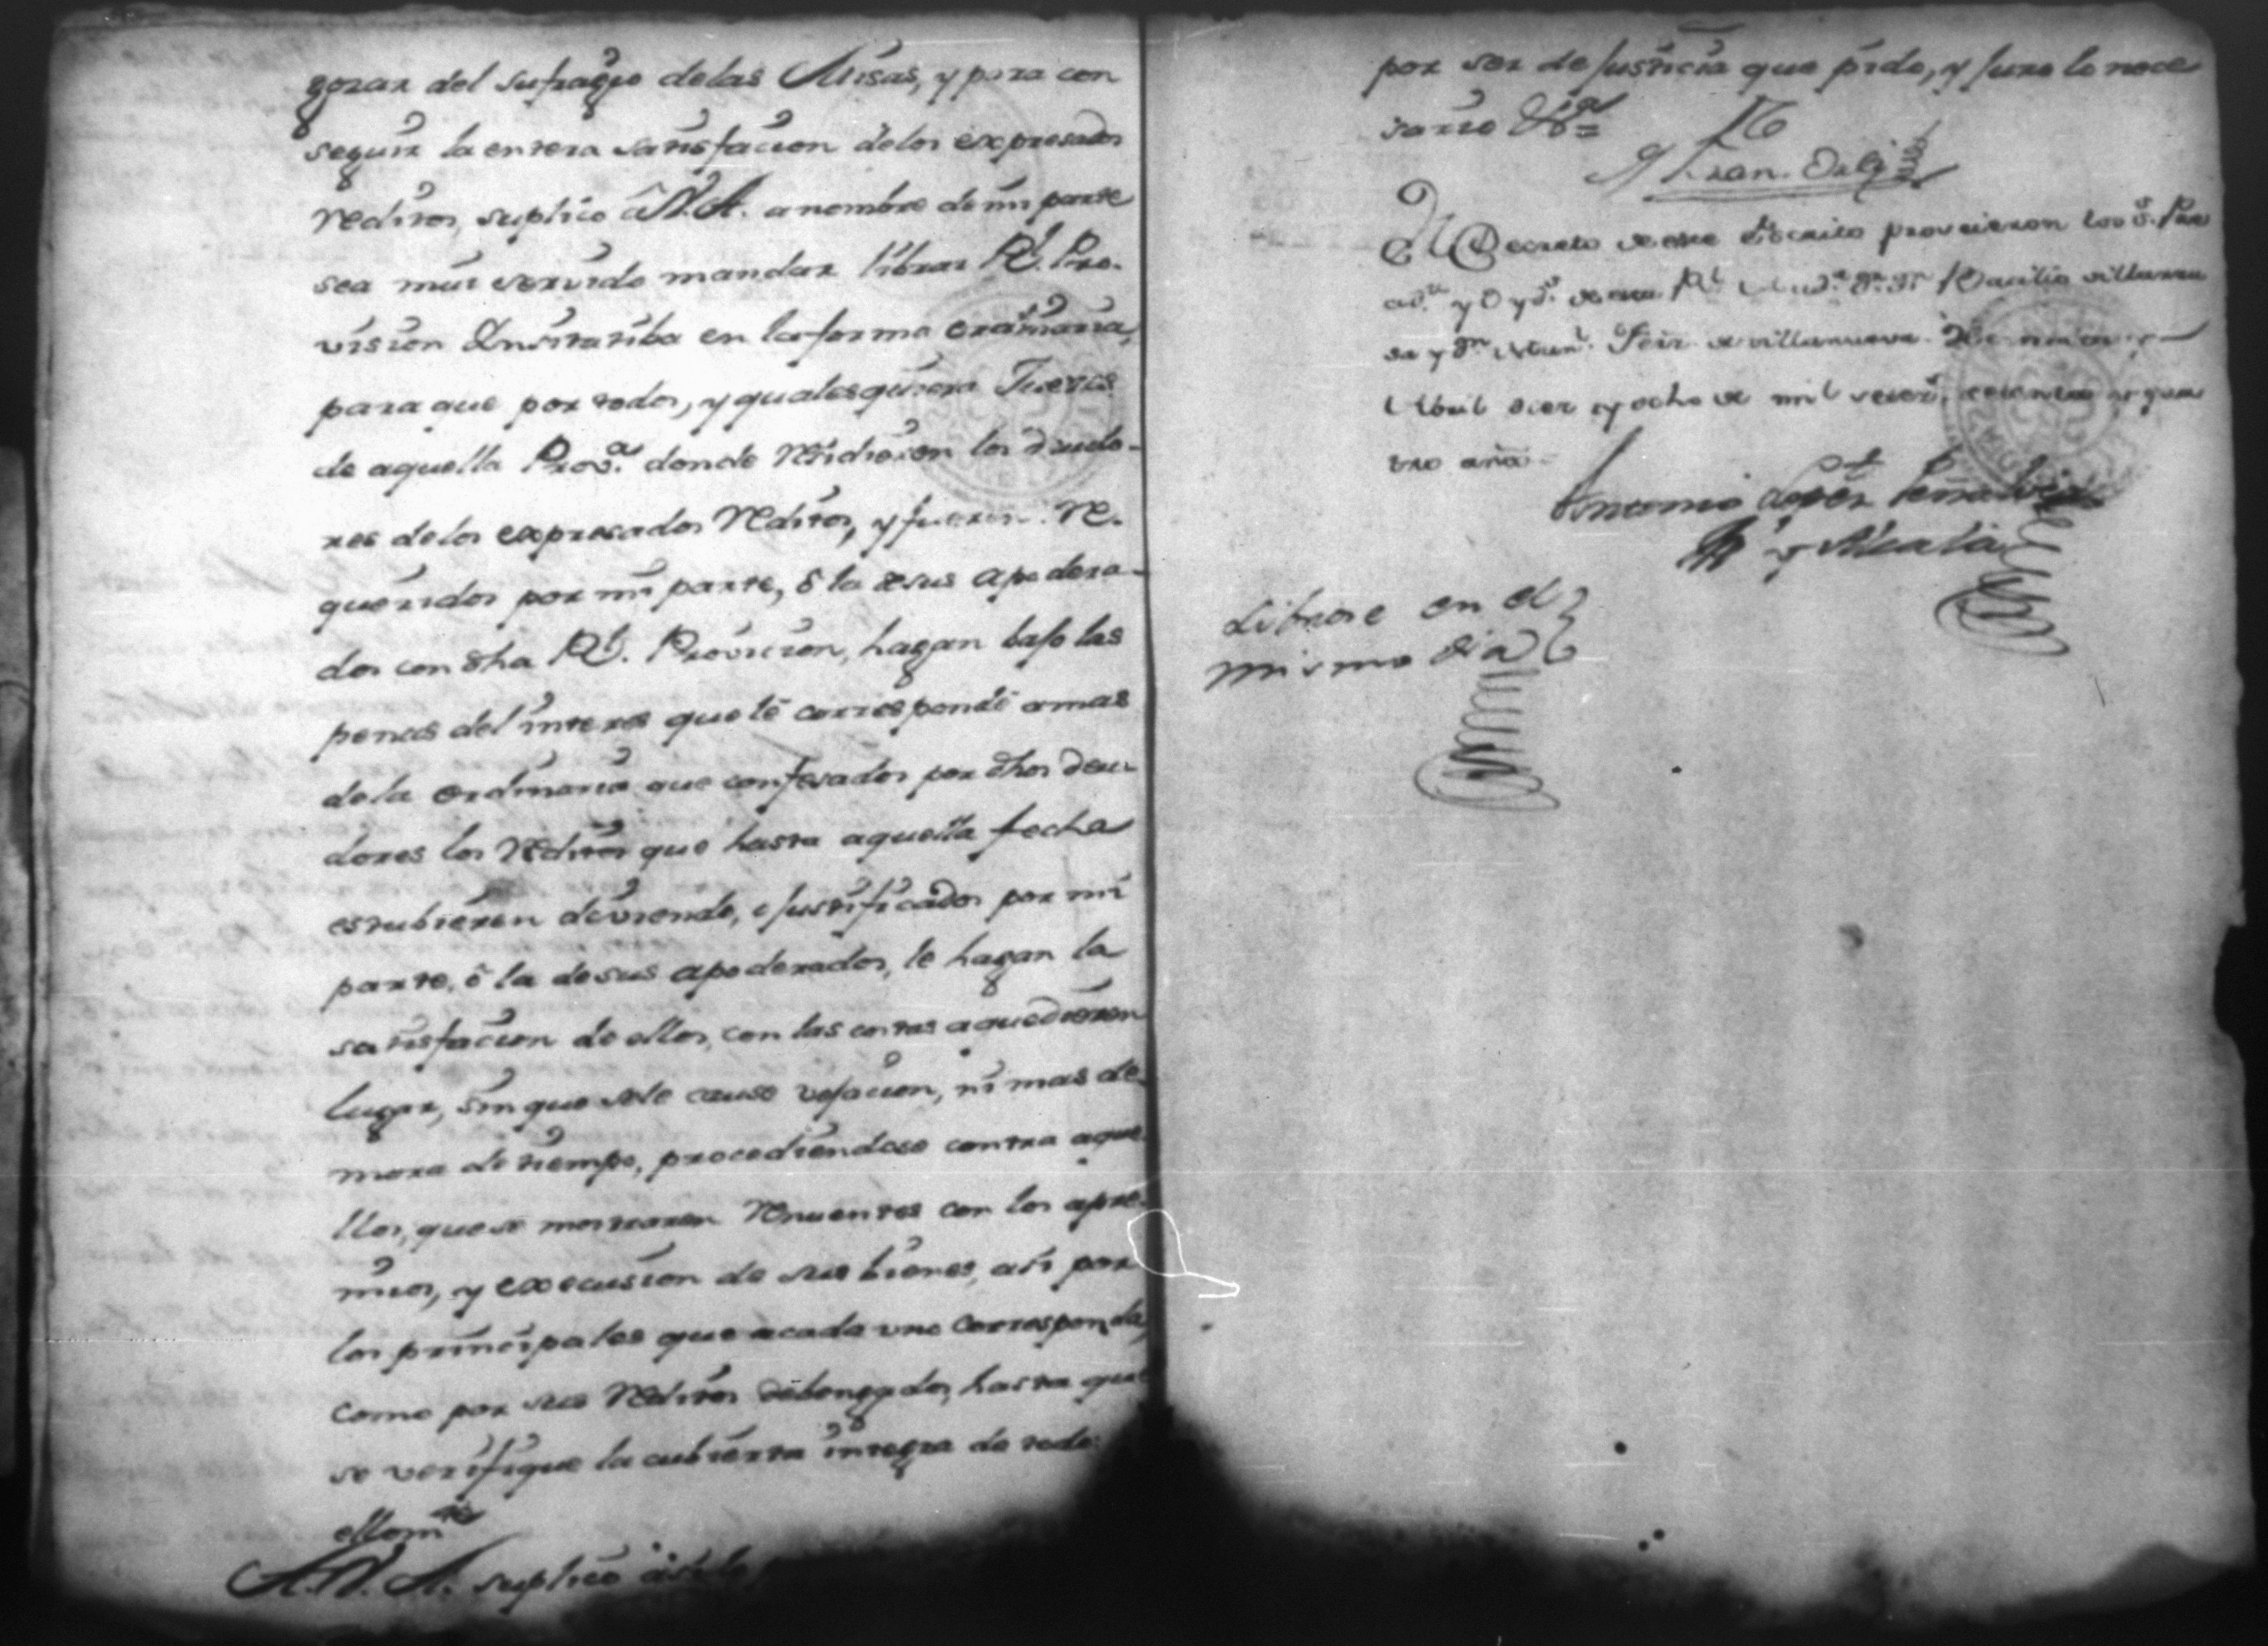 gozar del sufragio delas Misas, y para con
seguir la entera satisfacion delos expresados
Reditos, suplico â V.A. anombre de mi parte
sea mui servido mandar librar Rl. Pro-
vision Insitatiba en la forma ordinaria,
para que por todos, y qualesquiera Jueces
de aquella Prova. donde Residieren los deudo-
res delos expresados Reditos, y fueren Re-
queridos por mi parte, ô la de sus apodera-
dos con dha Rl. Provicion, hagan bajo las
penas del interes que le corresponde amas
dela ordinaria que confesados por dhos deu-
dores los Reditos que hasta aquella fecha
estubieren deviendo, ô justificados por mi
parte, ô la desus apoderados, le hagan la
satisfacion de ellos, con las costas aquedieren
lugar, sin que sele cause vejacion, ni mas de-
mora de tiempo, procediendose contra aque-
llos, que se mostraren Renuentes con los apre-
mios, y execusion de sus bienes, asi por
los principales que acada uno corresponda,
como por sus Reditos debengados, hasta que
se verifique la cubierta integra de todo
ello mte
A.V.A. suplico asi lo
por ser de justicia que pido, y juro lo nece
sario &a=
Fran. Delg
El Decreto de este Escrito proveieron los S. Pre
y O yds. de esta Rl. Auda. Basilio villarra
sa y Dn. Feix de villanueva.
Abril dies y ocho de mil setes. cetenta y qua
tro años.
Antonio Lopez Peñalver
y Alcala
Librose en el
mismo dia